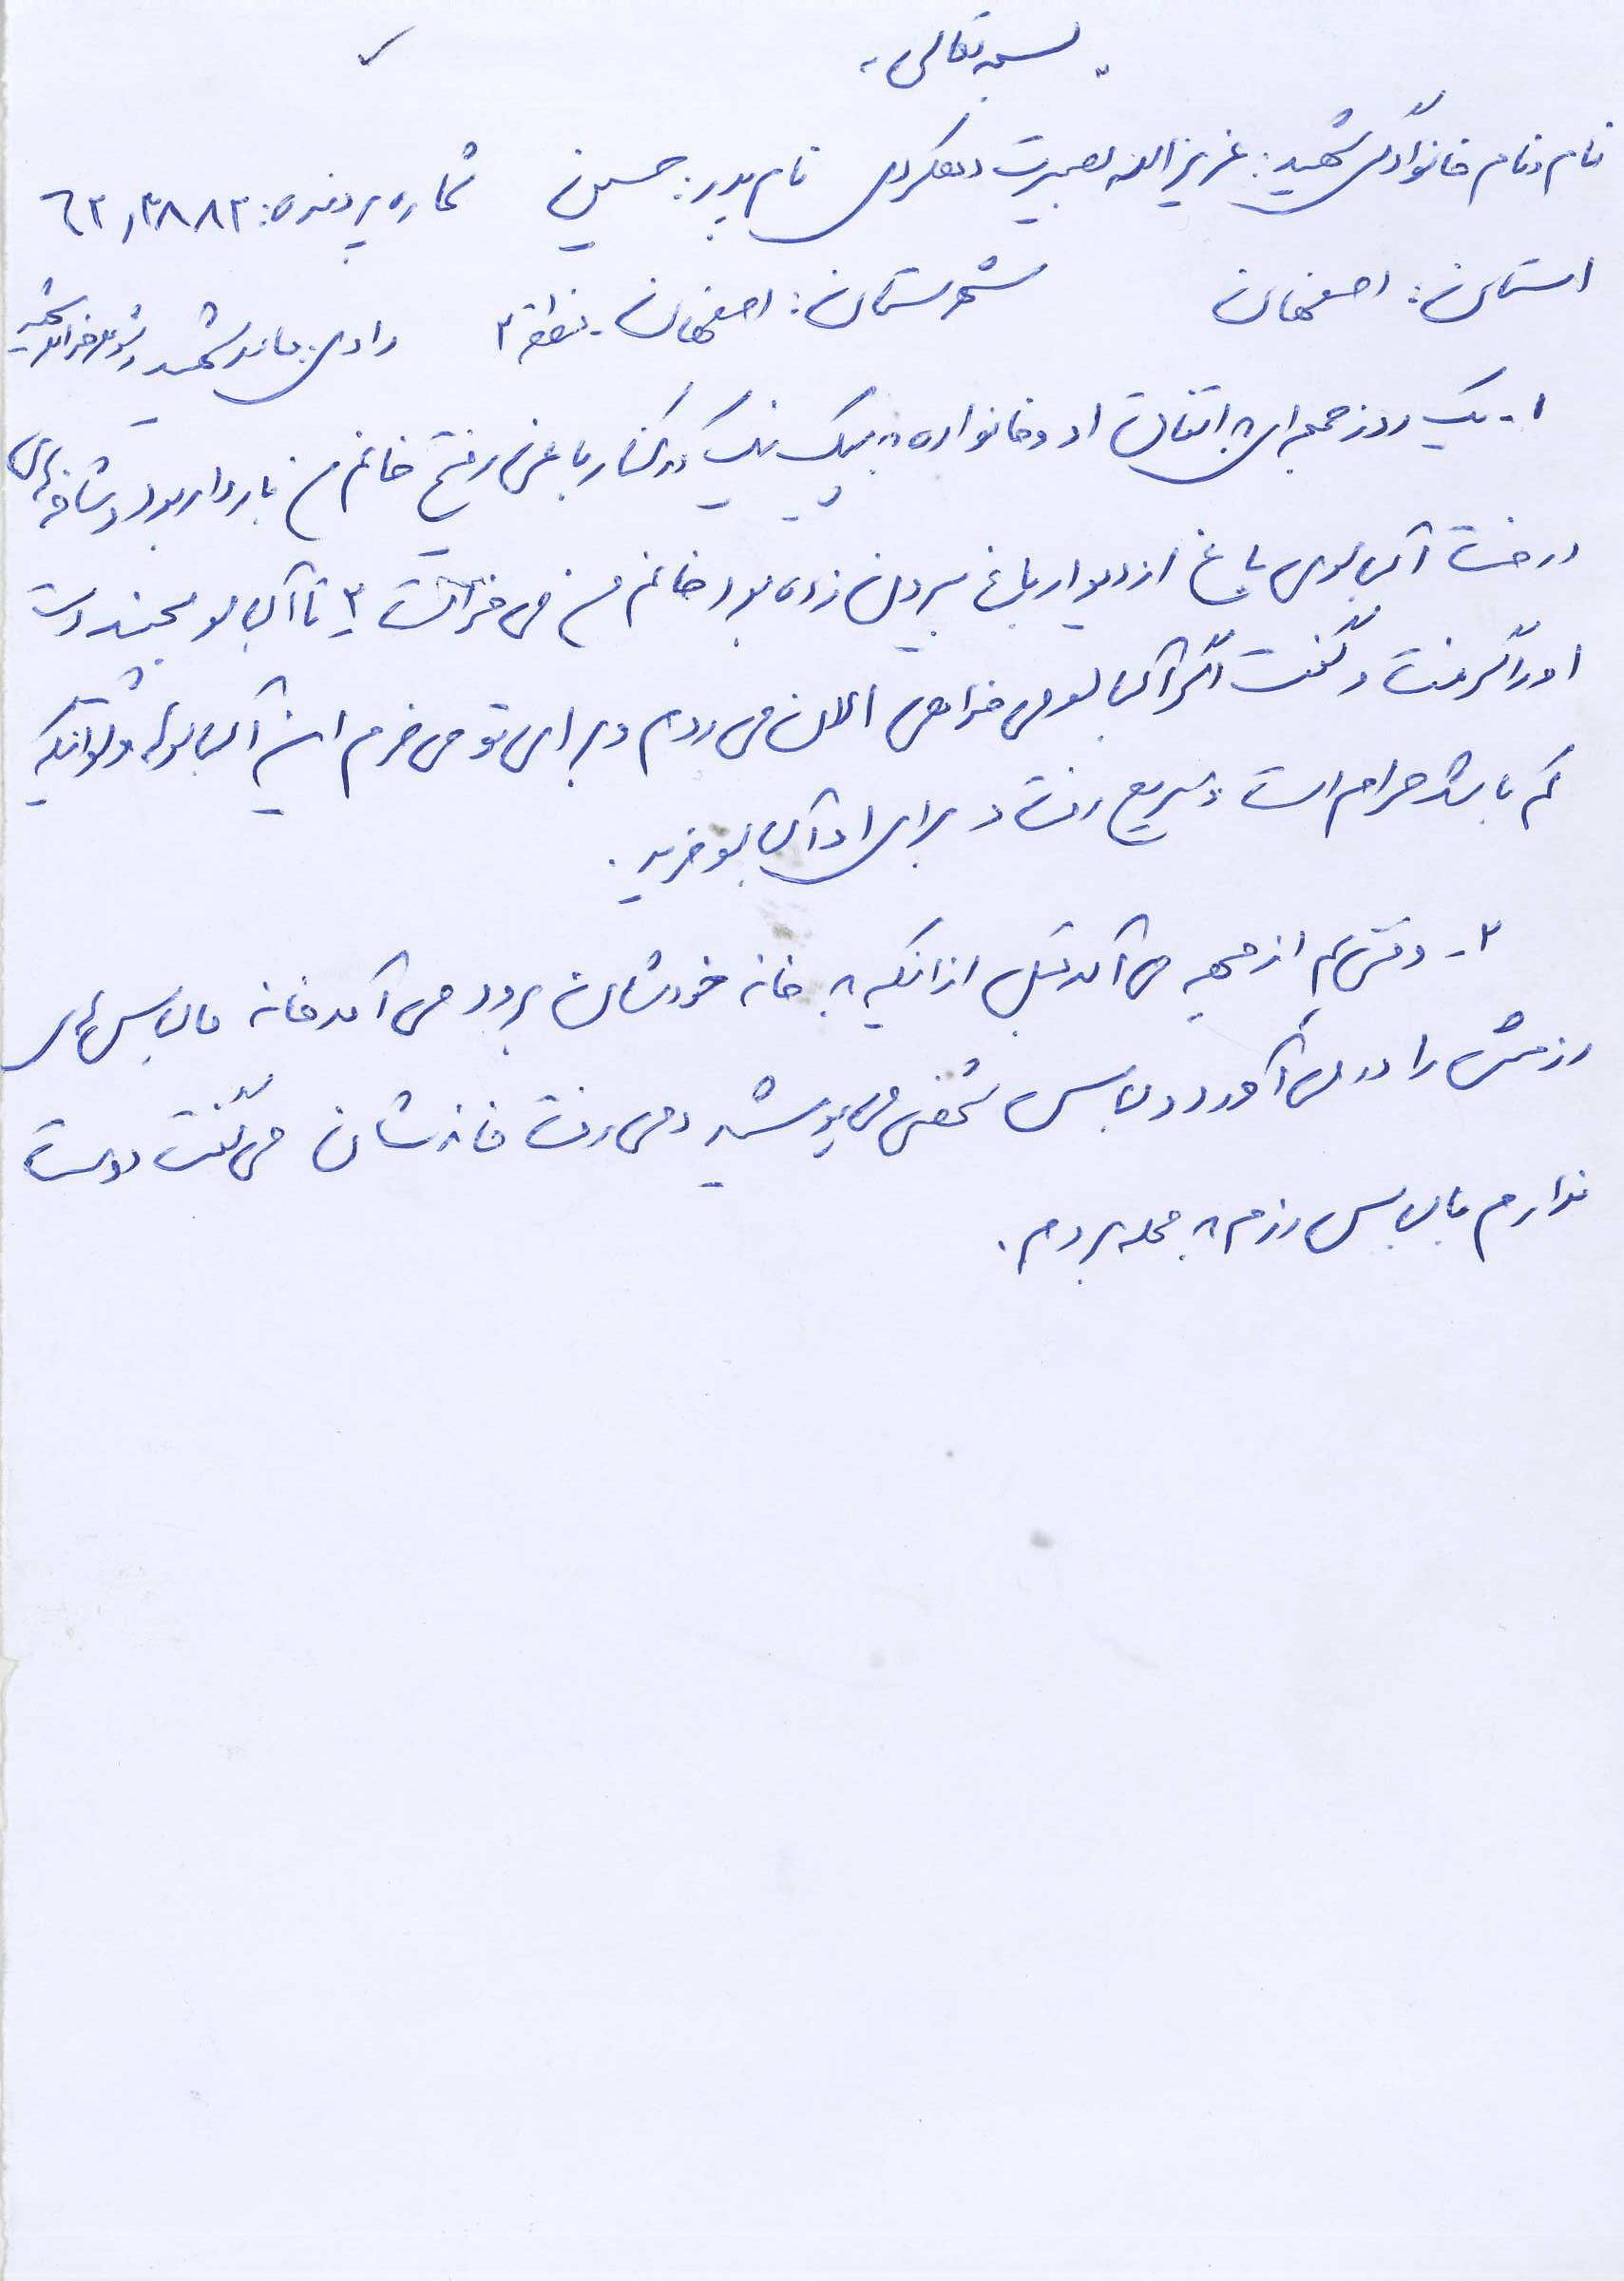 بسمه تعالی
نام و نام خانوادگی شهید: عزیزاله بصیرت دهکردی نام پدر: حسین شماره پرونده: ٦٢,٣٨٨٣
استان: اصفهان شهرستان: اصفهان - منطقه ٢ راوی: شهید شوهر خواهر شهید
١- یک روز جمعه ای به اتفاق او و خانواده به پیک نیک در کنار باغی رفتیم خانم من باردار بود و شاخه های
درخت آلبالوی باغ از دیوار باغ بیرون زده بود خانم من می خواست ٣ تا آلبالو بچیند دست
او را گرفت و گفت اگر آلبالو می خواهی الان می روم و برای تو می خرم این آلبالوها ولو اینکه
کم باشد حرام است و سریع رفت و برای او آلبالو خرید.
٢- وقتی هم از جبهه می آمد قبل از اینکه به خانه خودشان برود می آمد خانه ما لباس های
رزمش را در می آورد و لباس شخصی می پوشید و می رفت خانه شان می گفت دوست
ندارم با لباس رزم به محله بروم.